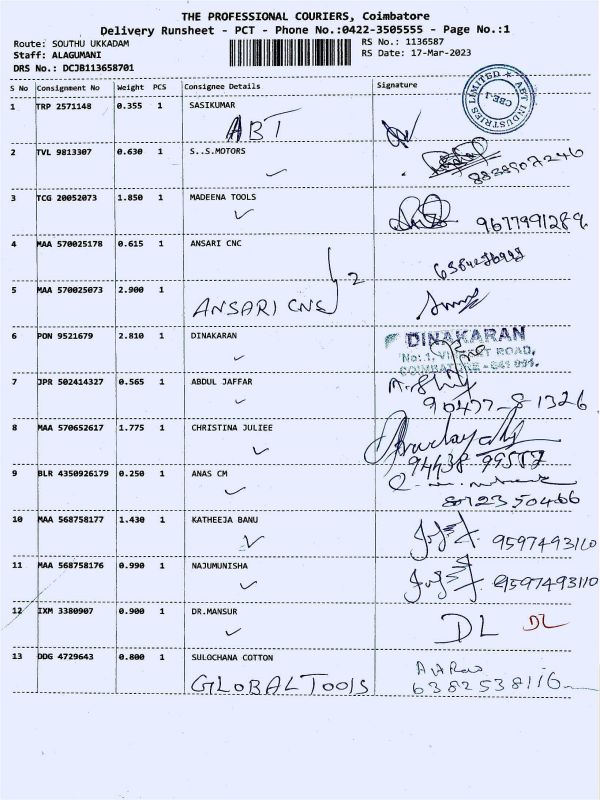 THE PROFESSIONAL COURIERS, Coimbatore
Delivery Runsheet - PCT - Phone No.:0422-3505555 - Page No.:1
Route: SOUTHU UKKADAM
RS No.: 1136587
Staff: ALAGUMANI
RS Date: 17-Mar-2023
DRS No.: DCJB113658701
S No Consignment No Weight PCS Consignee Details Signature
ABT INDUSTRIES LIMITED
CBE-1
1 TRP 2571148 0.355 1 SASIKUMAR
ABT
2 TVL 9813307 0.630 1 S..S.MOTORS
8838907246
3 TCG 20052073 1.850 1 MADEENA TOOLS
9677991289
4 MAA 570025178 0.615 1 ANSARI CNC
2
5 MAA 570025073 2.900 1
ANSARI CNC
6 PON 9521679 2.810 1 DINAKARAN
DINAKARAN
No: 1, ROAD,
COIMBATORE - 641 001.
7 JPR 502414327 0.565 1 ABDUL JAFFAR
90477-81326
8 MAA 570652617 1.775 1 CHRISTINA JULIEE
94438 99557
9 BLR 4350926179 0.250 1 ANAS CM
8012350466
10 MAA 568758177 1.430 1 KATHEEJA BANU
9597493110
11 MAA 568758176 0.990 1 NAJUMUNISHA
9597493110
12 IXM 3380907 0.900 1 DR.MANSUR
DL DL
13 DDG 4729643 0.800 1 SULOCHANA COTTON
GLOBAL TOOLS
6382538116